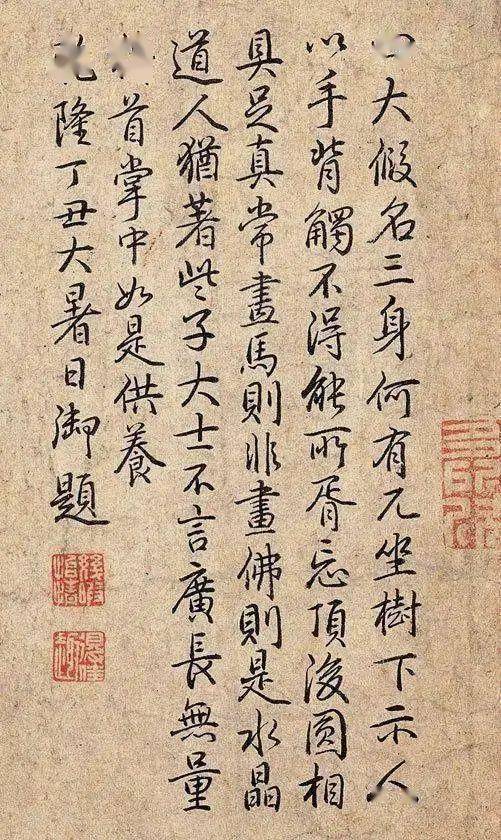 四大假名三身何有兀坐樹下示人
以手背觸不得能所胥忘頂後圓相
具足真常畫馬則非畫佛則是水晶
道人猶著些子大士不言廣長無量
首掌中如是供養
乾隆丁丑大暑日御題